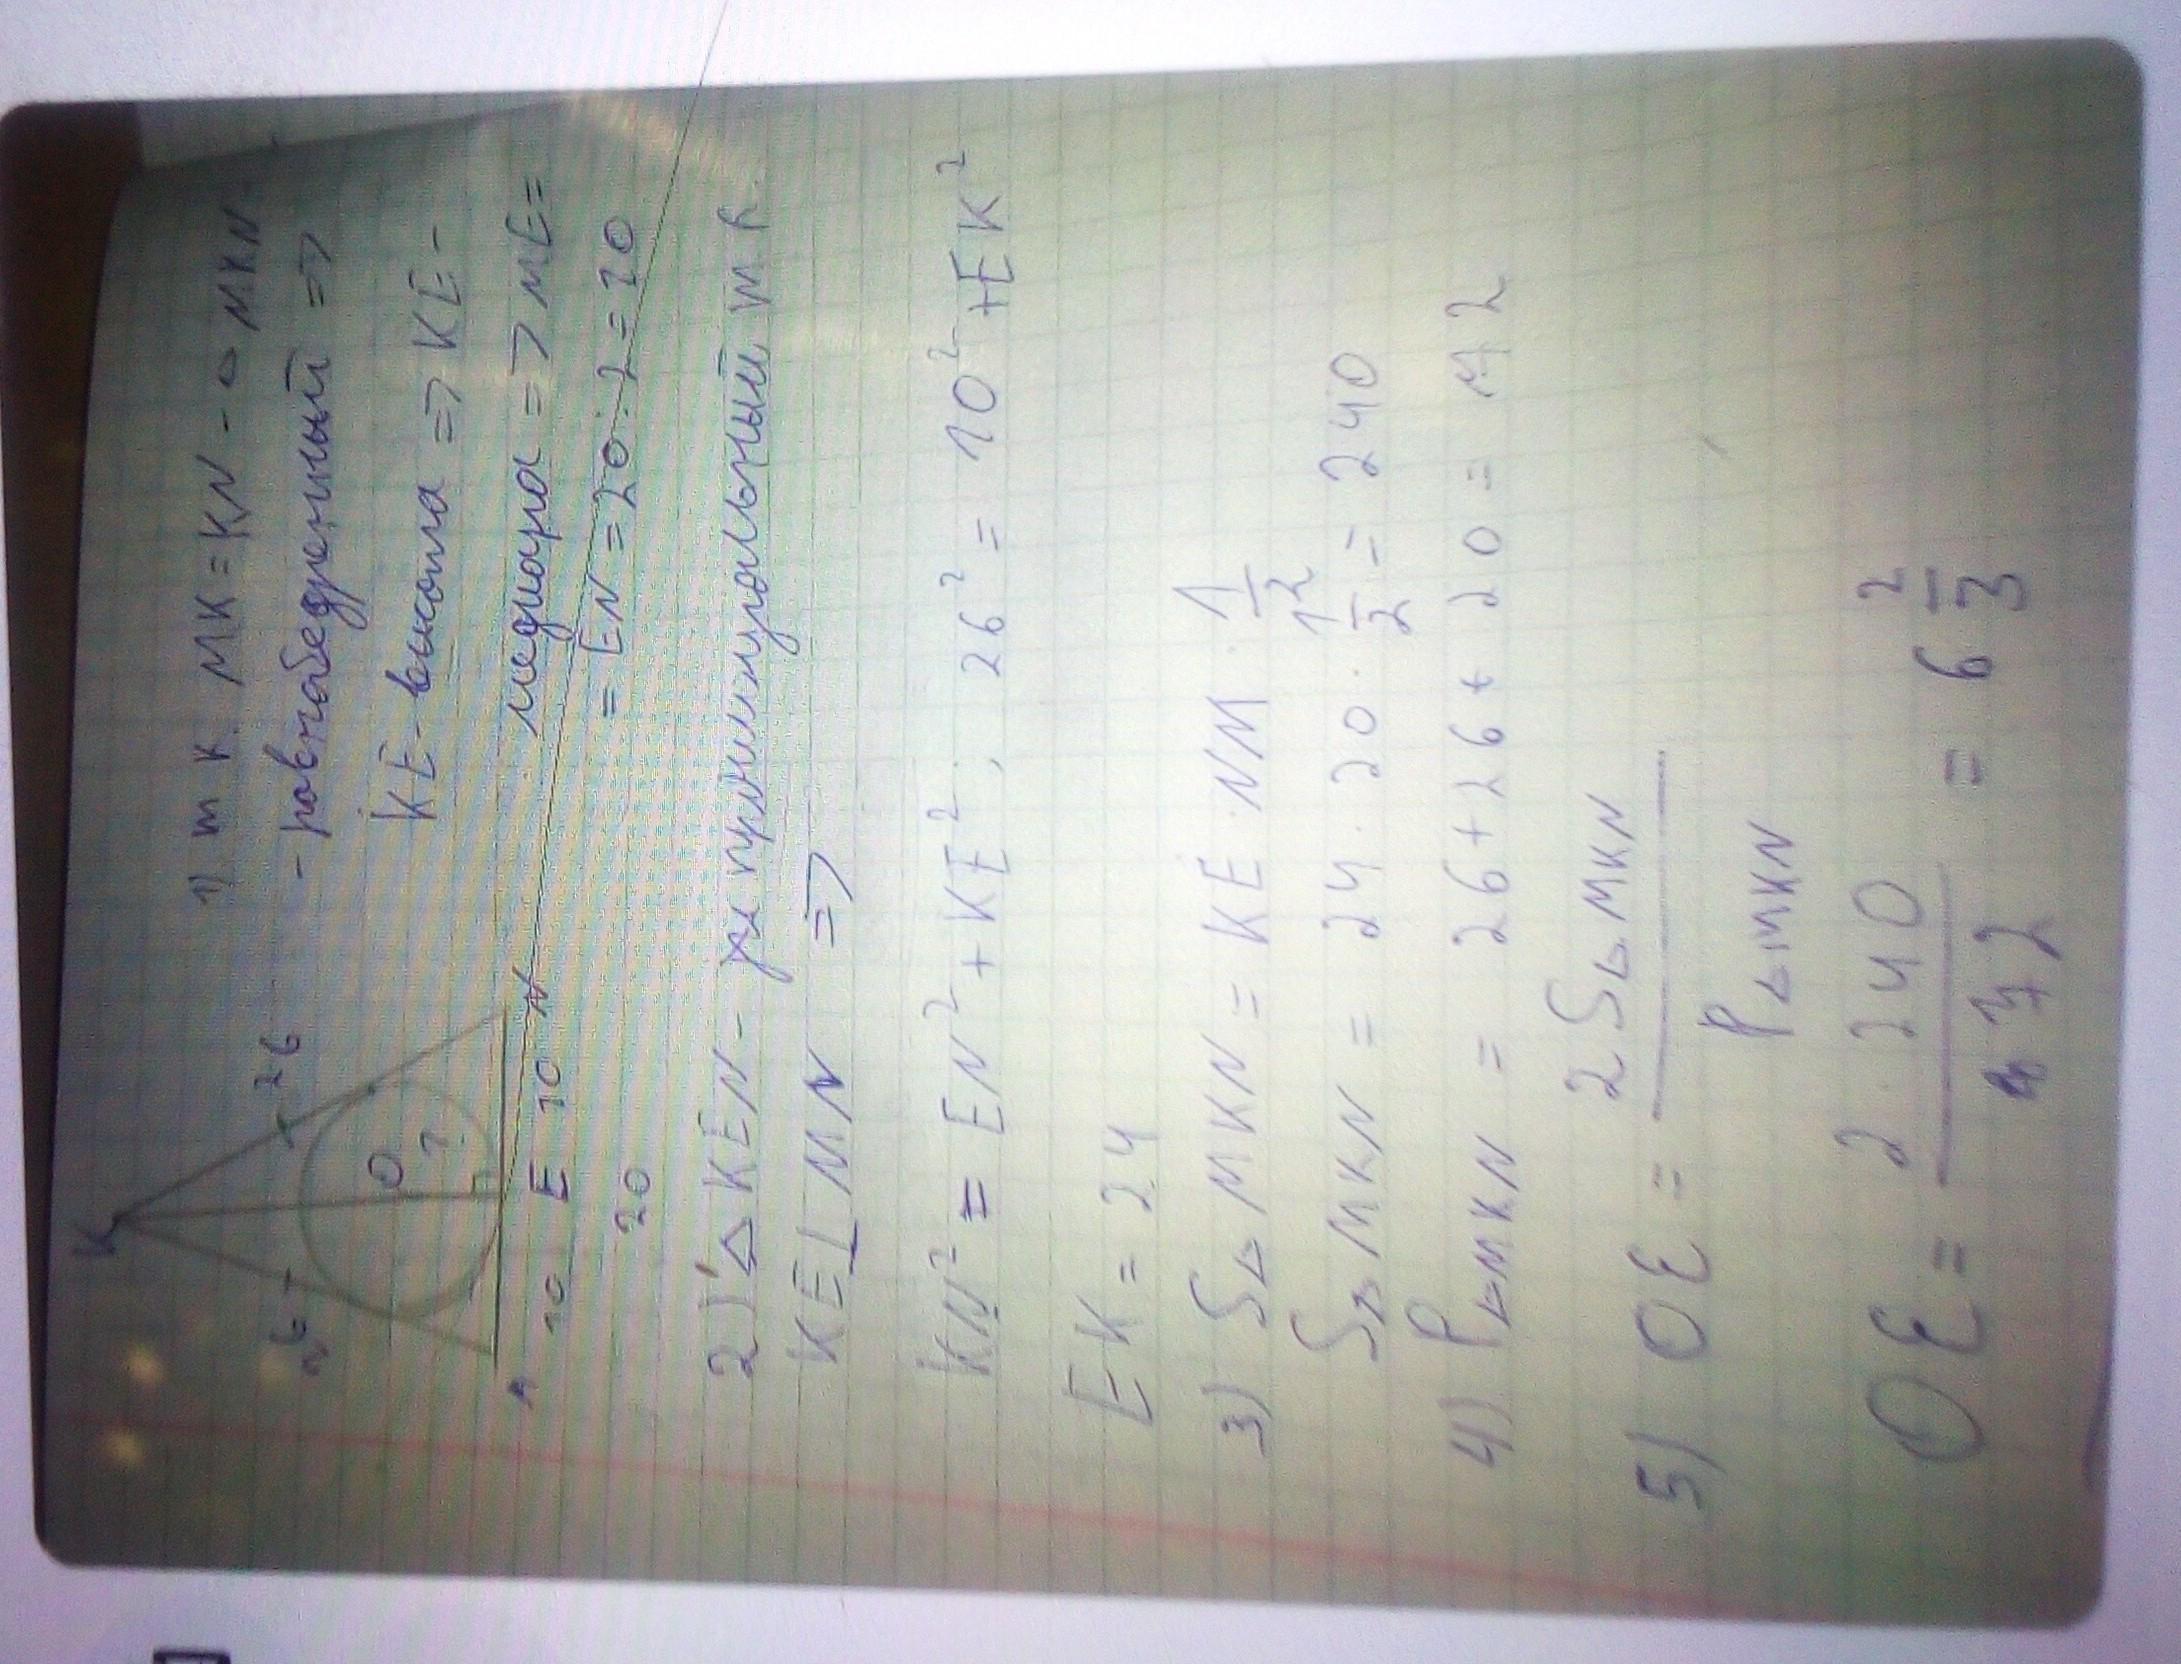 K
26
26
O
?
E
10
10
N
20
1) т К. MK = KN - △ MKN -
- равнобедренный =>
KE - высота => KE -
медиана => ME =
= EN = 20 : 2 = 10
2) △ KEN - прямоугольный т. к.
KE ⊥ MN =>
KN² = EN² + KE²; 26² = 10² + EK²
EK = 24
3) S△ MKN = KE · NM · 1/2
S△ MKN = 24 · 20 · 1/2 = 240
4) P△MKN = 26 + 26 + 20 = 72
5) OE = 2 S△ MKN / P△MKN
OE = 2 · 240 / 72 = 6 2/3